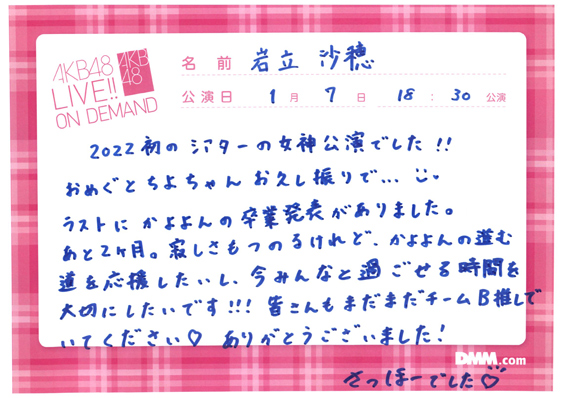 AKB48
LIVE!!
ON DEMAND
AKB
48
名前 岩立 沙穂
公演日 1月 7日 18:30公演
2022初のシアターの女神公演でした!!
おめぐとちよちゃんお久し振りで...
ラストにかよよんの卒業発表がありました。
あと2ヶ月。寂しさもつのるけれど、かよよんの進む
道を応援したいし、今みんなと過ごせる時間を
大切にしたいです!!! 皆さんもまだまだチームB推しで
いてください♡ ありがとうございました!
DMM.com
さっほーでした♡